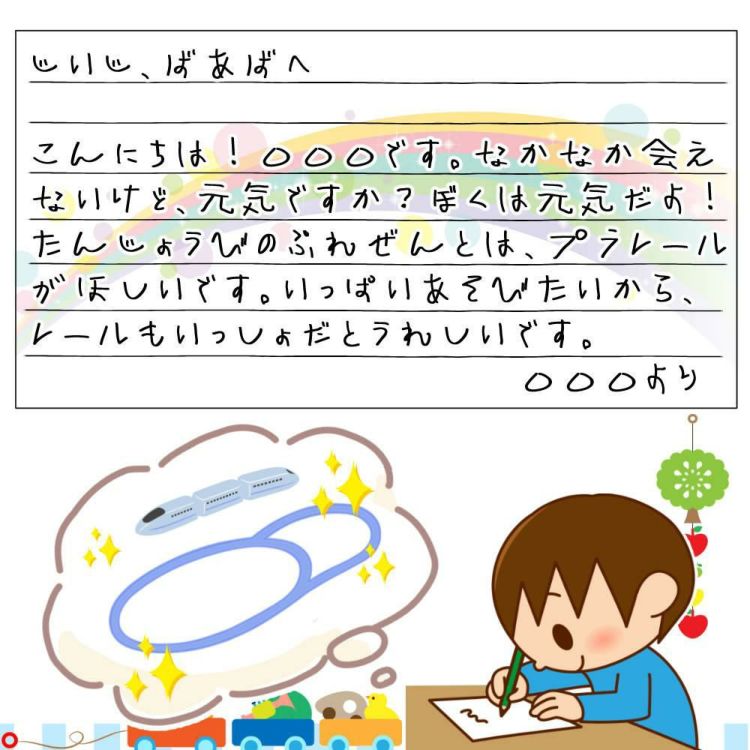 じいじ、ばあばへ
こんにちは!○○○です。なかなか会え
ないけど、元気ですか?ぼくは元気だよ!
たんじょうびのぷれぜんとは、プラレール
がほしいです。いっぱいあそびたいから、
レールもいっしょだとうれしいです。
○○○より